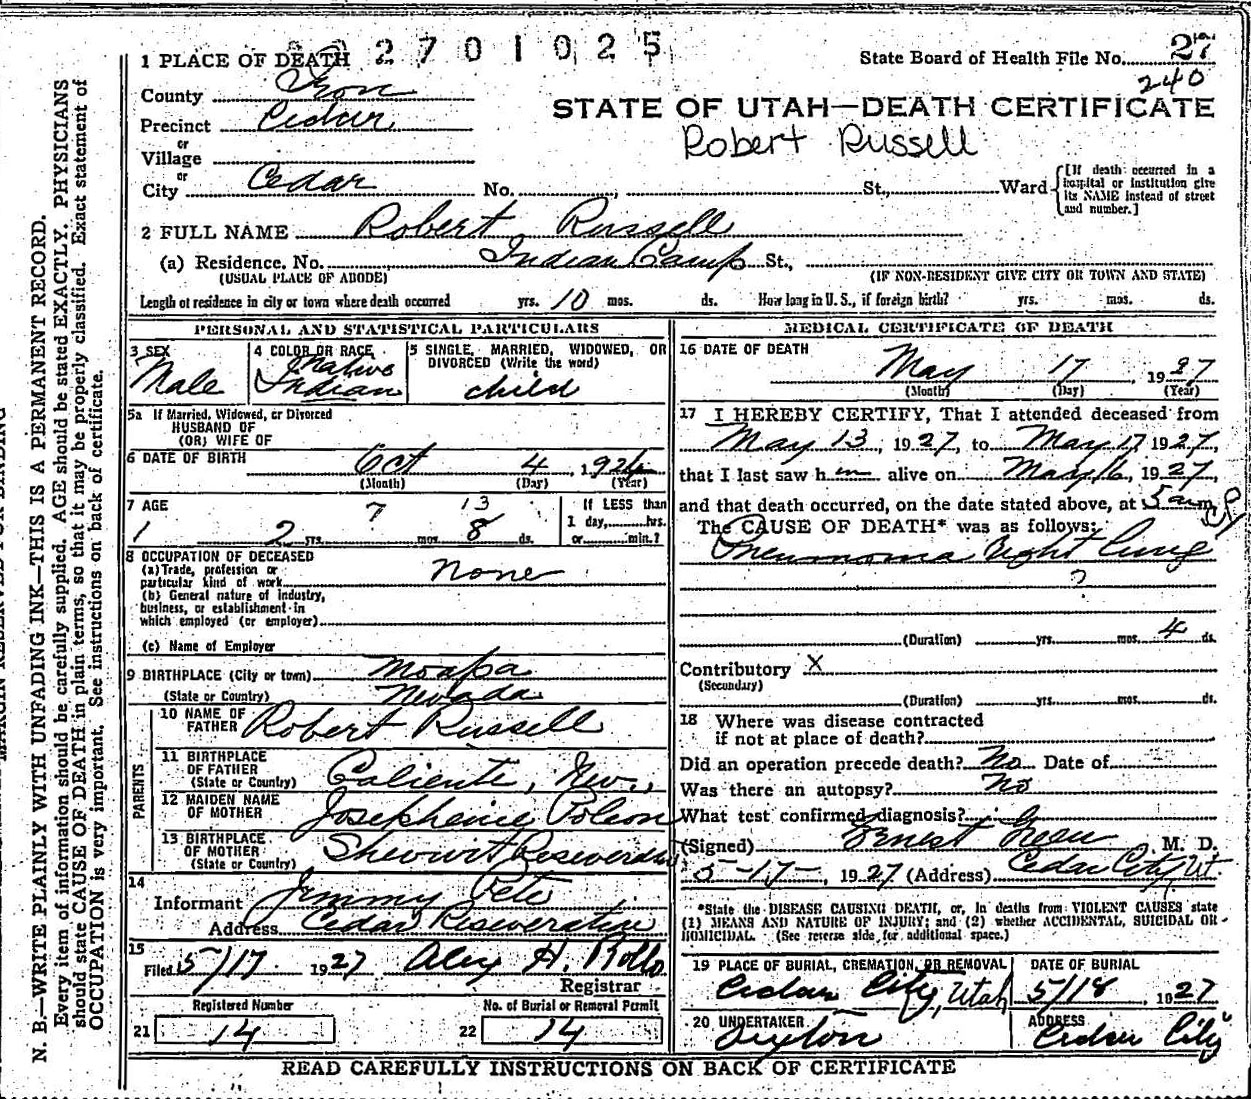 2701025
State Board of Health File No. 27
240
1 PLACE OF DEATH
County Iron
Precinct Cedar
or
Village
or
City Cedar No. St., Ward
[If death occurred in a hospital or institution give its NAME instead of street and number.]
STATE OF UTAH—DEATH CERTIFICATE
Robert Russell
2 FULL NAME Robert Russell
(a) Residence. No. Indian Camp St.,
(USUAL PLACE OF ABODE) (IF NON-RESIDENT GIVE CITY OR TOWN AND STATE)
Length of residence in city or town where death occurred yrs. 10 mos. ds. How long in U. S., if foreign birth? yrs. mos. ds.
PERSONAL AND STATISTICAL PARTICULARS
3 SEX
Male
4 COLOR OR RACE
Native
Indian
5 SINGLE, MARRIED, WIDOWED, OR DIVORCED (Write the word)
child
5a If Married, Widowed, or Divorced
HUSBAND OF
(OR) WIFE OF
6 DATE OF BIRTH Oct 4, 192
(Month) (Day) (Year)
7 AGE
7 13
1 2 yrs. mos. 8 ds.
If LESS than
1 day, hrs.
or min.?
8 OCCUPATION OF DECEASED
(a) Trade, profession or
particular kind of work none
(b) General nature of industry,
business, or establishment in
which employed (or employer)
(c) Name of Employer
9 BIRTHPLACE (City or town) Moapa
(State or Country) Nevada
PARENTS
10 NAME OF FATHER Robert Russell
11 BIRTHPLACE OF FATHER
(State or Country) Caliente, Nev.,
12 MAIDEN NAME OF MOTHER Josephenie
13 BIRTHPLACE OF MOTHER
(State or Country) Shevwit
14
Informant Jimmy Pete
Address Cedar Reseveration
15
Filed 5/17 1927 Alex H. Rollo
Registrar
Registered Number
21 14
No. of Burial or Removal Permit
22 14
MEDICAL CERTIFICATE OF DEATH
16 DATE OF DEATH
May 17, 1927
(Month) (Day) (Year)
17 I HEREBY CERTIFY, That I attended deceased from
May 13, 1927, to May 17, 1927,
that I last saw him alive on May 16, 1927,
and that death occurred, on the date stated above, at 5 am m.
The CAUSE OF DEATH* was as follows:
Pneumonia right lung
?
(Duration) yrs. mos. 4 ds.
Contributory X
(Secondary)
(Duration) yrs. mos. ds.
18 Where was disease contracted
if not at place of death?
Did an operation precede death? No Date of
Was there an autopsy? No
What test confirmed diagnosis?
(Signed) Ernest Green, M. D.
5-17-, 1927 (Address) Cedar City, Ut.
*State the DISEASE CAUSING DEATH, or, in deaths from VIOLENT CAUSES state
(1) MEANS AND NATURE OF INJURY; and (2) whether ACCIDENTAL, SUICIDAL OR
HOMICIDAL. (See reverse side for additional space.)
19 PLACE OF BURIAL, CREMATION, OR REMOVAL
Cedar City, Utah
DATE OF BURIAL
5/18, 1927
20 UNDERTAKER
ADDRESS
Cedar City
READ CAREFULLY INSTRUCTIONS ON BACK OF CERTIFICATE
N. B.—WRITE PLAINLY WITH UNFADING INK—THIS IS A PERMANENT RECORD.
Every item of information should be carefully supplied. AGE should be stated EXACTLY. PHYSICIANS
should state CAUSE OF DEATH in plain terms, so that it may be properly classified. Exact statement of
OCCUPATION is very important. See instructions on back of certificate.
MARGIN RESERVED FOR BINDING